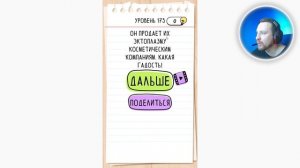 УРОВЕНЬ 173
0
ОН ПРОДАЕТ ИХ
ЭКТОПЛАЗМУ
КОСМЕТИЧЕСКИМ
КОМПАНИЯМ. КАКАЯ
ГАДОСТЬ!
ДАЛЬШЕ
ПОДЕЛИТЬСЯ